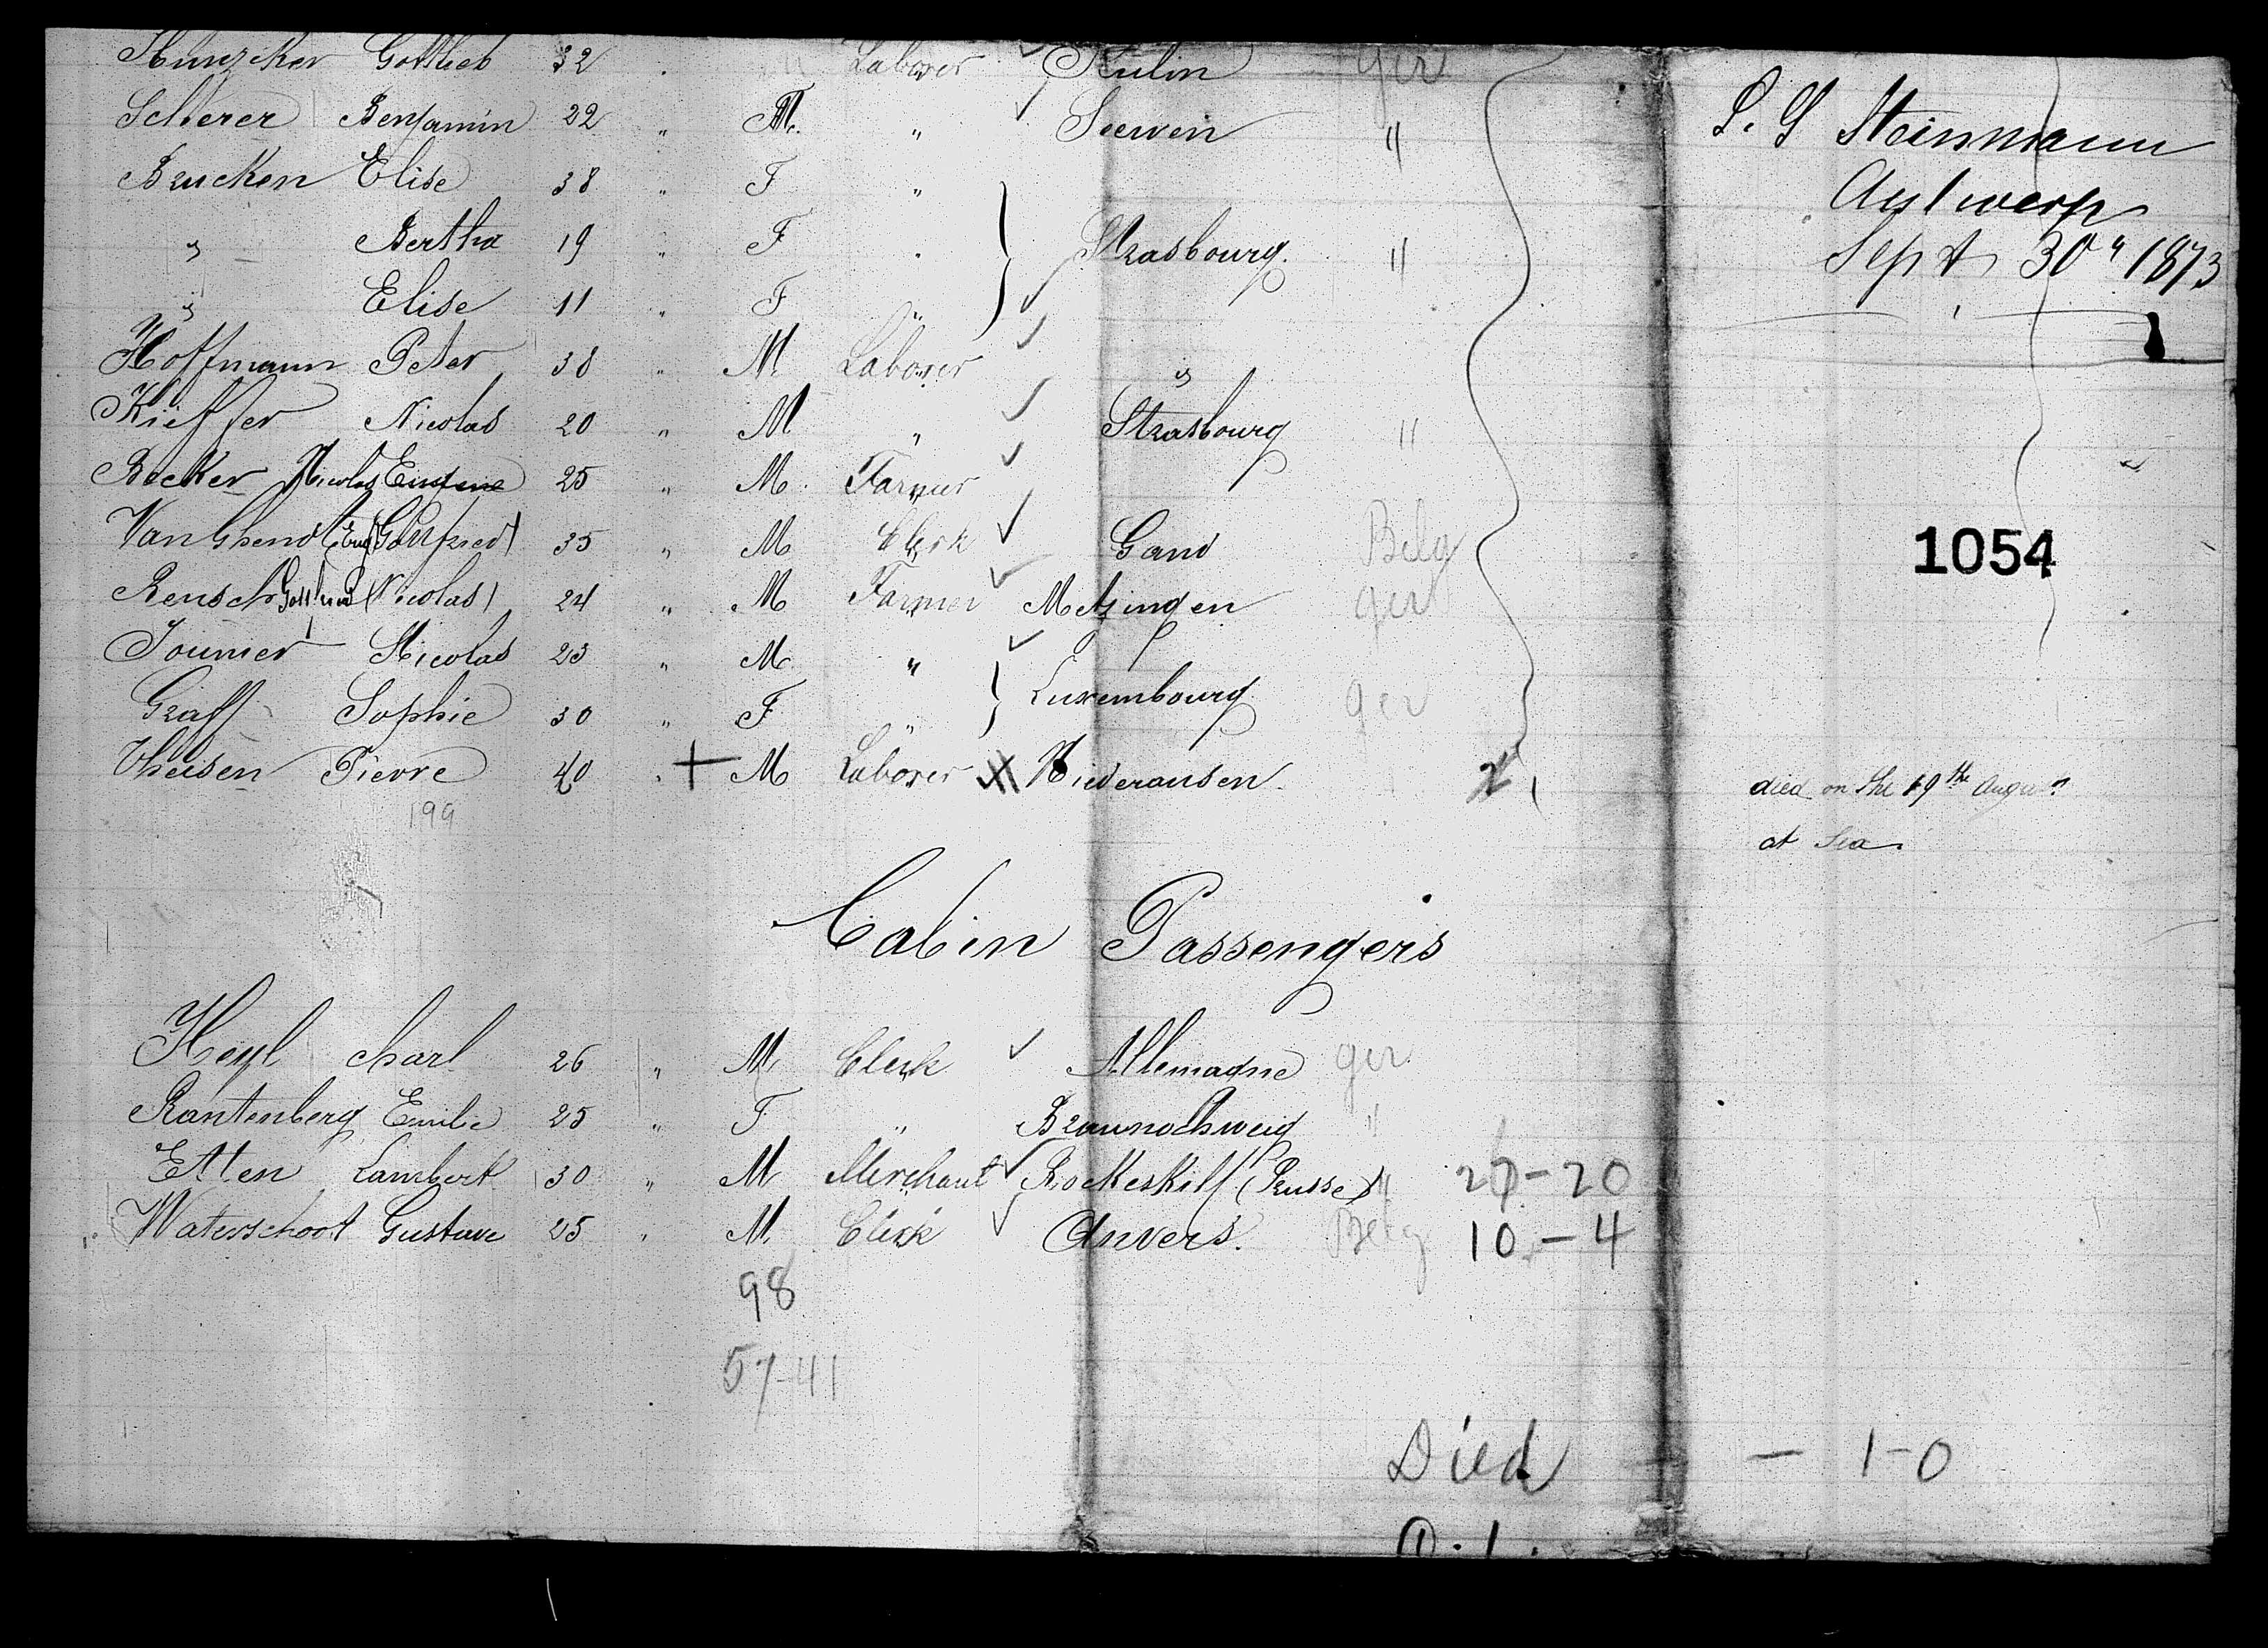 Hunziker Gottlieb 32 Laborer Kulin ger
Scherer Benjamin 22 " M. " Seewen "
Brucken Elise 38 " F "
" Bertha 19 " F " Strasbourg. "
" Elise 11 " F "
Hoffmann Peter 38 " M. Laborer "
Kieffer Nicolas 20 " M " Strasbourg "
Becker Nicolas 25 " M. Farmer
Van Ghendt (Gottfried) 35 " M Clerk Gand Belg
Rensch Gottfried (Nicolas) 24 " M Farmer Metzingen ger
Toumer Nicolas 23 " M "
Graff Sophie 30 " F " Luxembourg ger
Theisen Pierre 40 " + M Laborer Niederansen.
199
Cabin Passengers
Heyl Charl 26 " M. Clerk Allemagne ger
Rantenberg Emilie 25 " F " Braunschweig "
Etten Lambert 30 " M Merchant Rockeskill (Prusse) " 27-20
Waterschoot Gustave 25 " M. Clerk Anvers. Belg 10-4
98
57-41
Died - 1-0
L. G Steinmann
Antwerp
Sept 30" 1873
1054
died on the 19th August
at Sea.